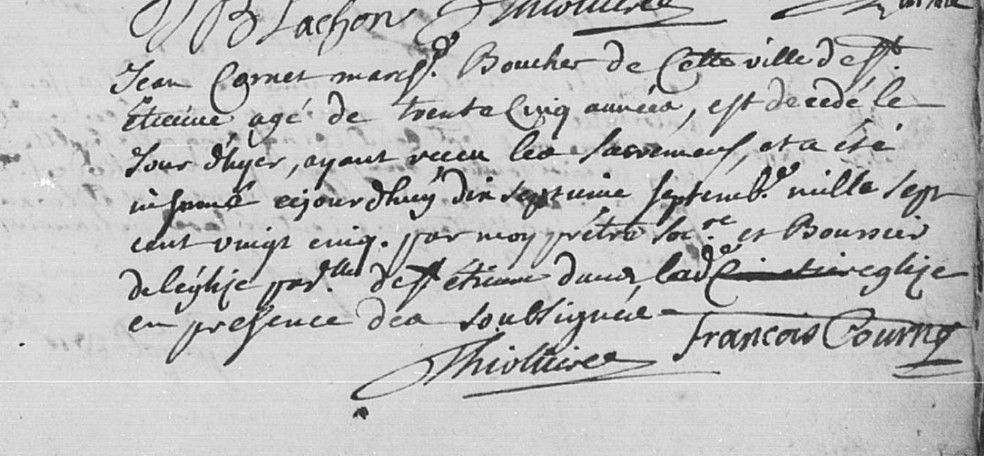 Lachon Thiolliere
Jean Cornet march.d Boucher de Cette ville de st.
Étienne agé de trente Cinq années, est decedé le
Jour d'hyer, ayant receu les sacremens, et a été
inhumé cejourdhuy dix septieme septemb.e mille sept
cent vingt cinq. par moy prêtre soc.re et Boursier
de l'églize par.lle de st étienne dans lad.e eglize
en presence des soubsignés
Thiolliere François Courno